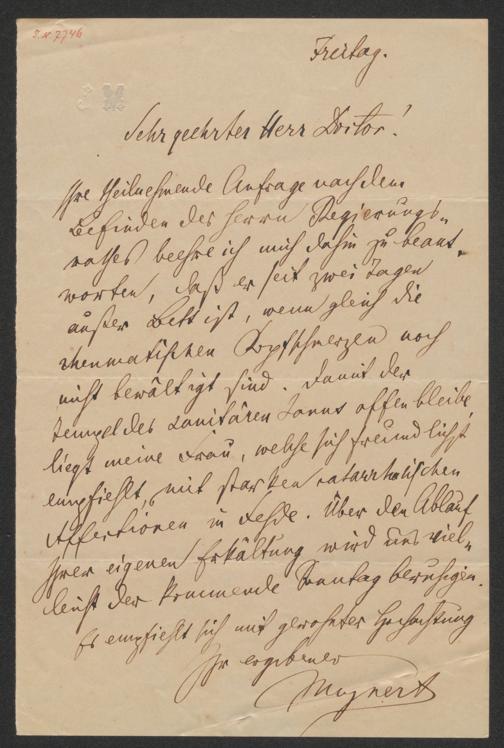 I. N. 7746
Freitag.
Sehr geehrter Herr Doctor!
Ihre theilnehmende Anfrage nach dem
Befinden des Herrn Regierungs-
rathes beehre ich mich dahin zu beant-
worten, daß er seit zwei Tagen
außer Bett ist, wenn gleich die
rheumatischen Kopfschmerzen noch
nicht bewältigt sind. Damit der
Tempel des sanitären Janus offen bleibe,
liegt meine Frau, welche sich freundlichst
empfiehlt, mit starken catarrhalischen
Affectionen in Fehde. Über den Ablauf
Ihrer eigenen Erkältung wird uns viel-
leicht der kommende Sonntag beruhigen.
Es empfiehlt sich mit gewohnter Hochachtung
Ihr ergebener
Meynert